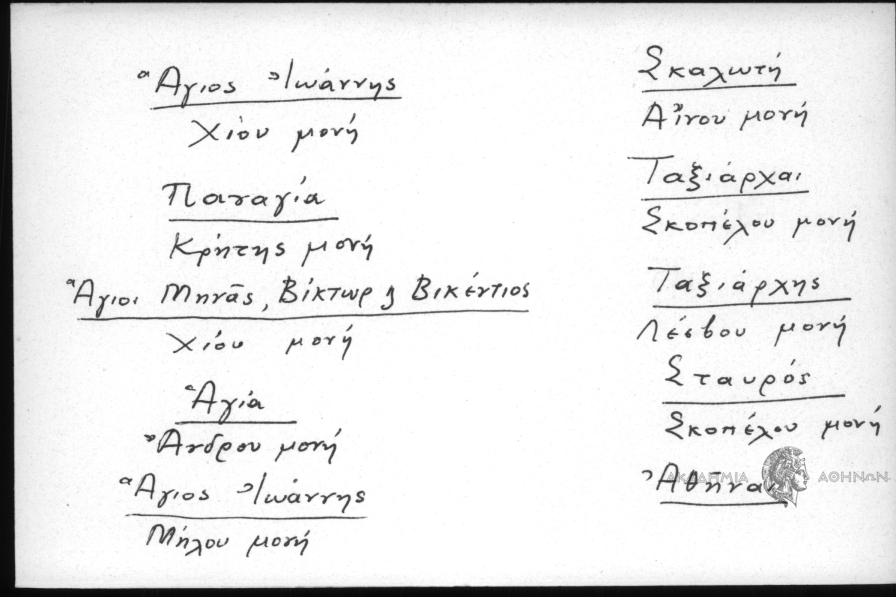 Ἅγιος Ἰωάννης
Χίου μονή
Παναγία
Κρήτης μονή
Ἅγιοι Μηνᾶς, Βίκτωρ ϗ Βικέντιος
Χίου μονή
Ἁγία
Ἄνδρου μονή
Ἅγιος Ἰωάννης
Μήλου μονή
Σκαλωτή
Αἴνου μονή
Ταξιάρχαι
Σκοπέλου μονή
Ταξιάρχης
Λέσβου μονή
Σταυρός
Σκοπέλου μονή
Ἀθῆναι
ΑΚΑΔΗΜΙΑ ΑΘΗΝΩΝ